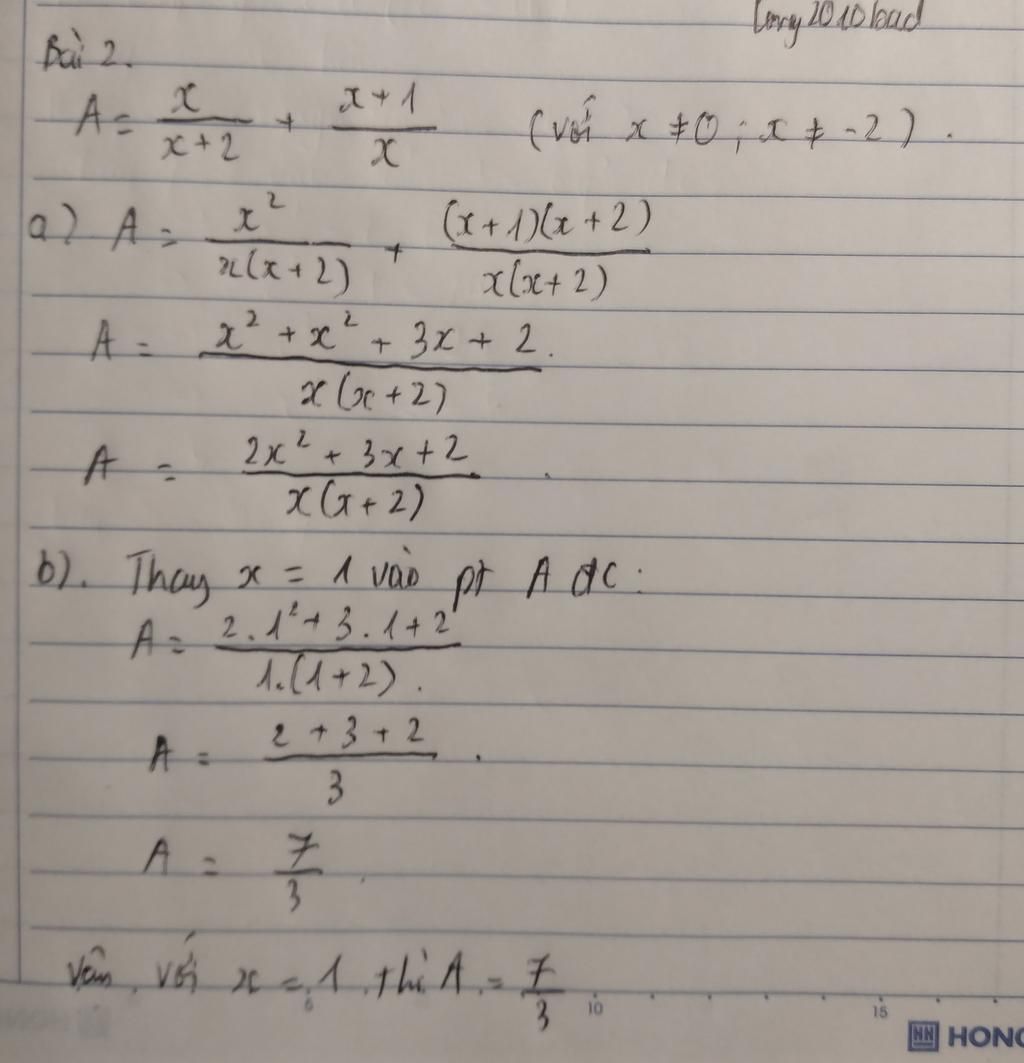 Bài 2.
A = x/(x+2) + (x+1)/x (với x ≠ 0 ; x ≠ -2).
a) A = x²/(x(x+2)) + ((x+1)(x+2))/(x(x+2))
A = (x² + x² + 3x + 2)/(x(x+2)).
A = (2x² + 3x + 2)/(x(x+2)).
b). Thay x = 1 vào pt A đc:
A = (2.1² + 3.1 + 2)/(1.(1+2)).
A = (2 + 3 + 2)/3.
A = 7/3.
với x = 1 thì A = 7/3
5 10 15
HONG